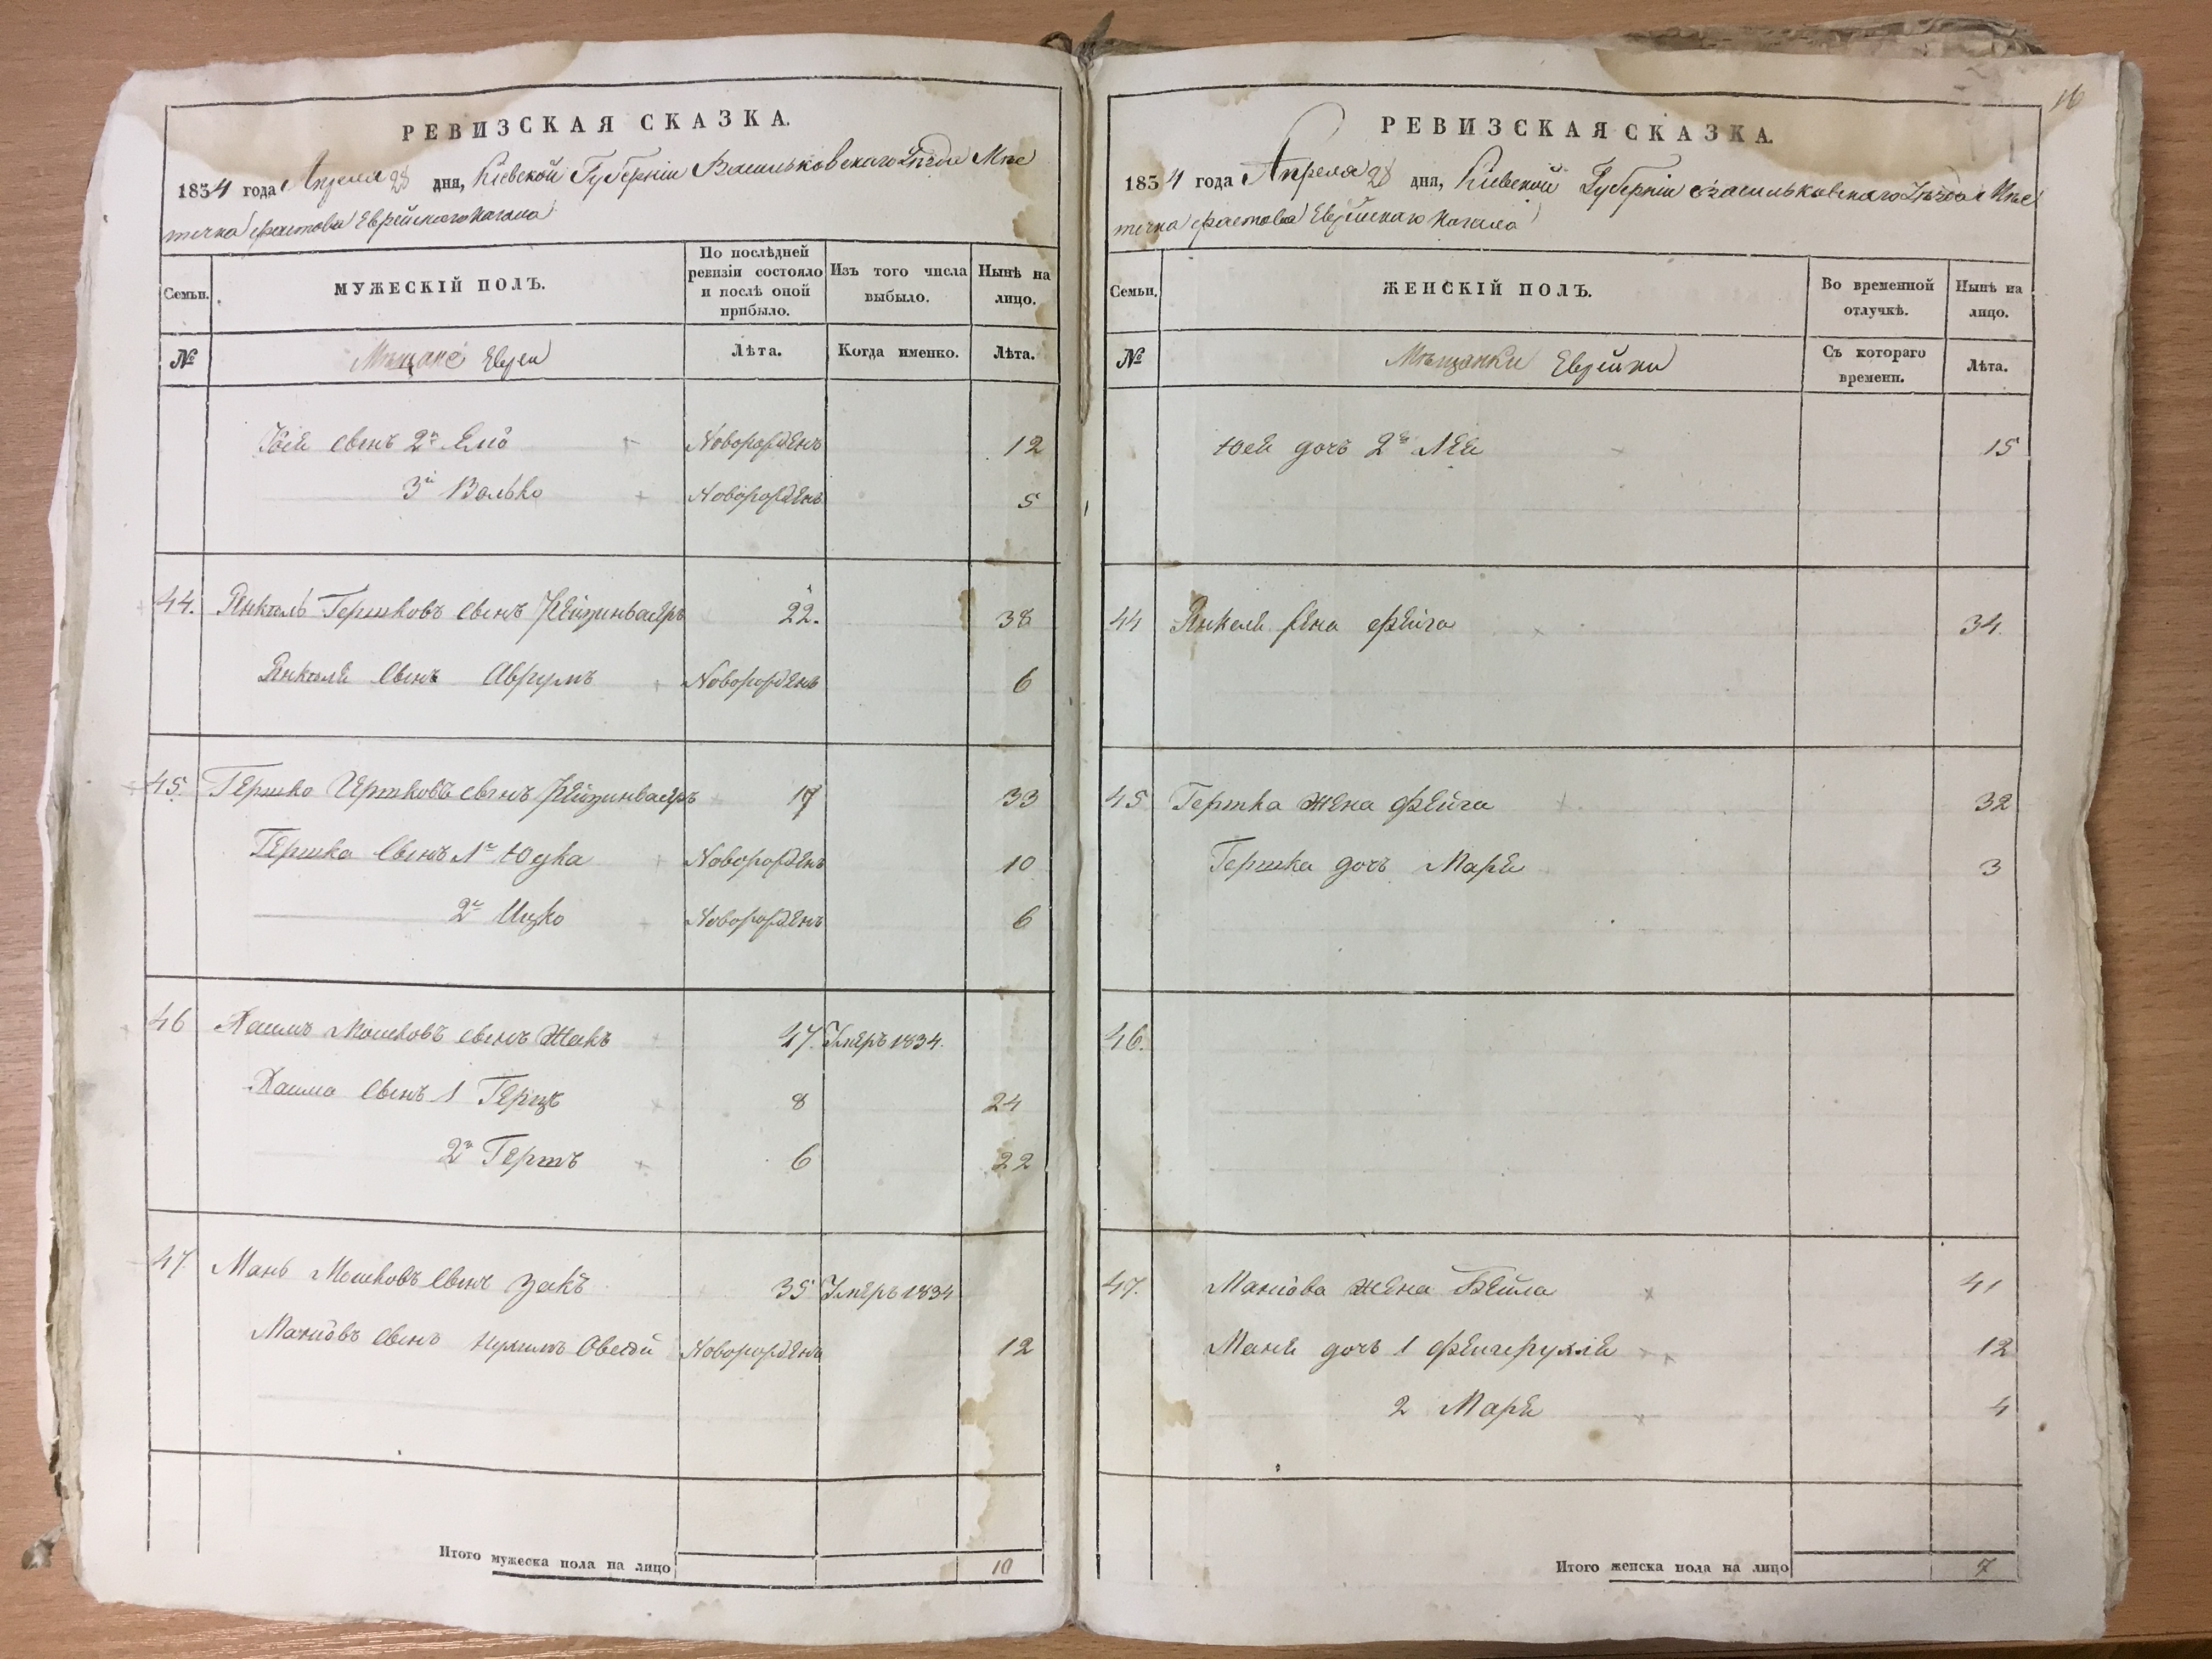 РЕВИЗСКАЯ СКАЗКА.
1834 года Апреля 28 дня, Кіевской Губерніи Васильковскаго Уѣзда Мѣс
течка Фастова Еврейскаго Кагала
Семьи.
МУЖЕСКІЙ ПОЛЪ.
По послѣдней ревизіи состояло и послѣ оной прибыло.
Изъ того числа выбыло.
Нынѣ на лицо.
№
Мѣщане Евреи
Лѣта.
Когда именно.
Лѣта.
сынъ 2й Ельо Новорожденъ 12
3й Волько Новорожденъ 5
44. Янкель Гершковъ сынъ 22. 38
Янкеля сынъ Аврумъ Новорожденъ 6
45. Гершко сынъ 17 33
Гершка сынъ 1й Юдка Новорожденъ 10
2й Ицко Новорожденъ 6
46 Хаимъ Мошковъ сынъ Жакъ 47. Умеръ 1834.
Хаима сынъ 1 Герцъ 8 24
2й Гершъ 6 22
47. Мань Мошковъ сынъ Закъ 35 Умеръ 1834
Маніовъ сынъ Овсей Новорожденъ 12
Итого мужеска пола на лицо 10
16
РЕВИЗСКАЯ СКАЗКА.
1834 года Апреля 28 дня, Кіевской Губерніи Васильковскаго Уѣзда Мѣс
течка Фастова Еврейскаго Кагала
Семьи.
ЖЕНСКІЙ ПОЛЪ.
Во временной отлучкѣ.
Нынѣ на лицо.
№
Мѣщанки Еврейки
Съ котораго времени.
Лѣта.
дочь 2я Лея 15
44 Янкеля жена Фейга 34.
45 Гершка жена Фейга 32
Гершка дочь Маря 3
46.
47. Маніова жена Бейла 41
Маня дочь 1 Фейгерухля 12
2 Маря 4
Итого женска пола на лицо 7